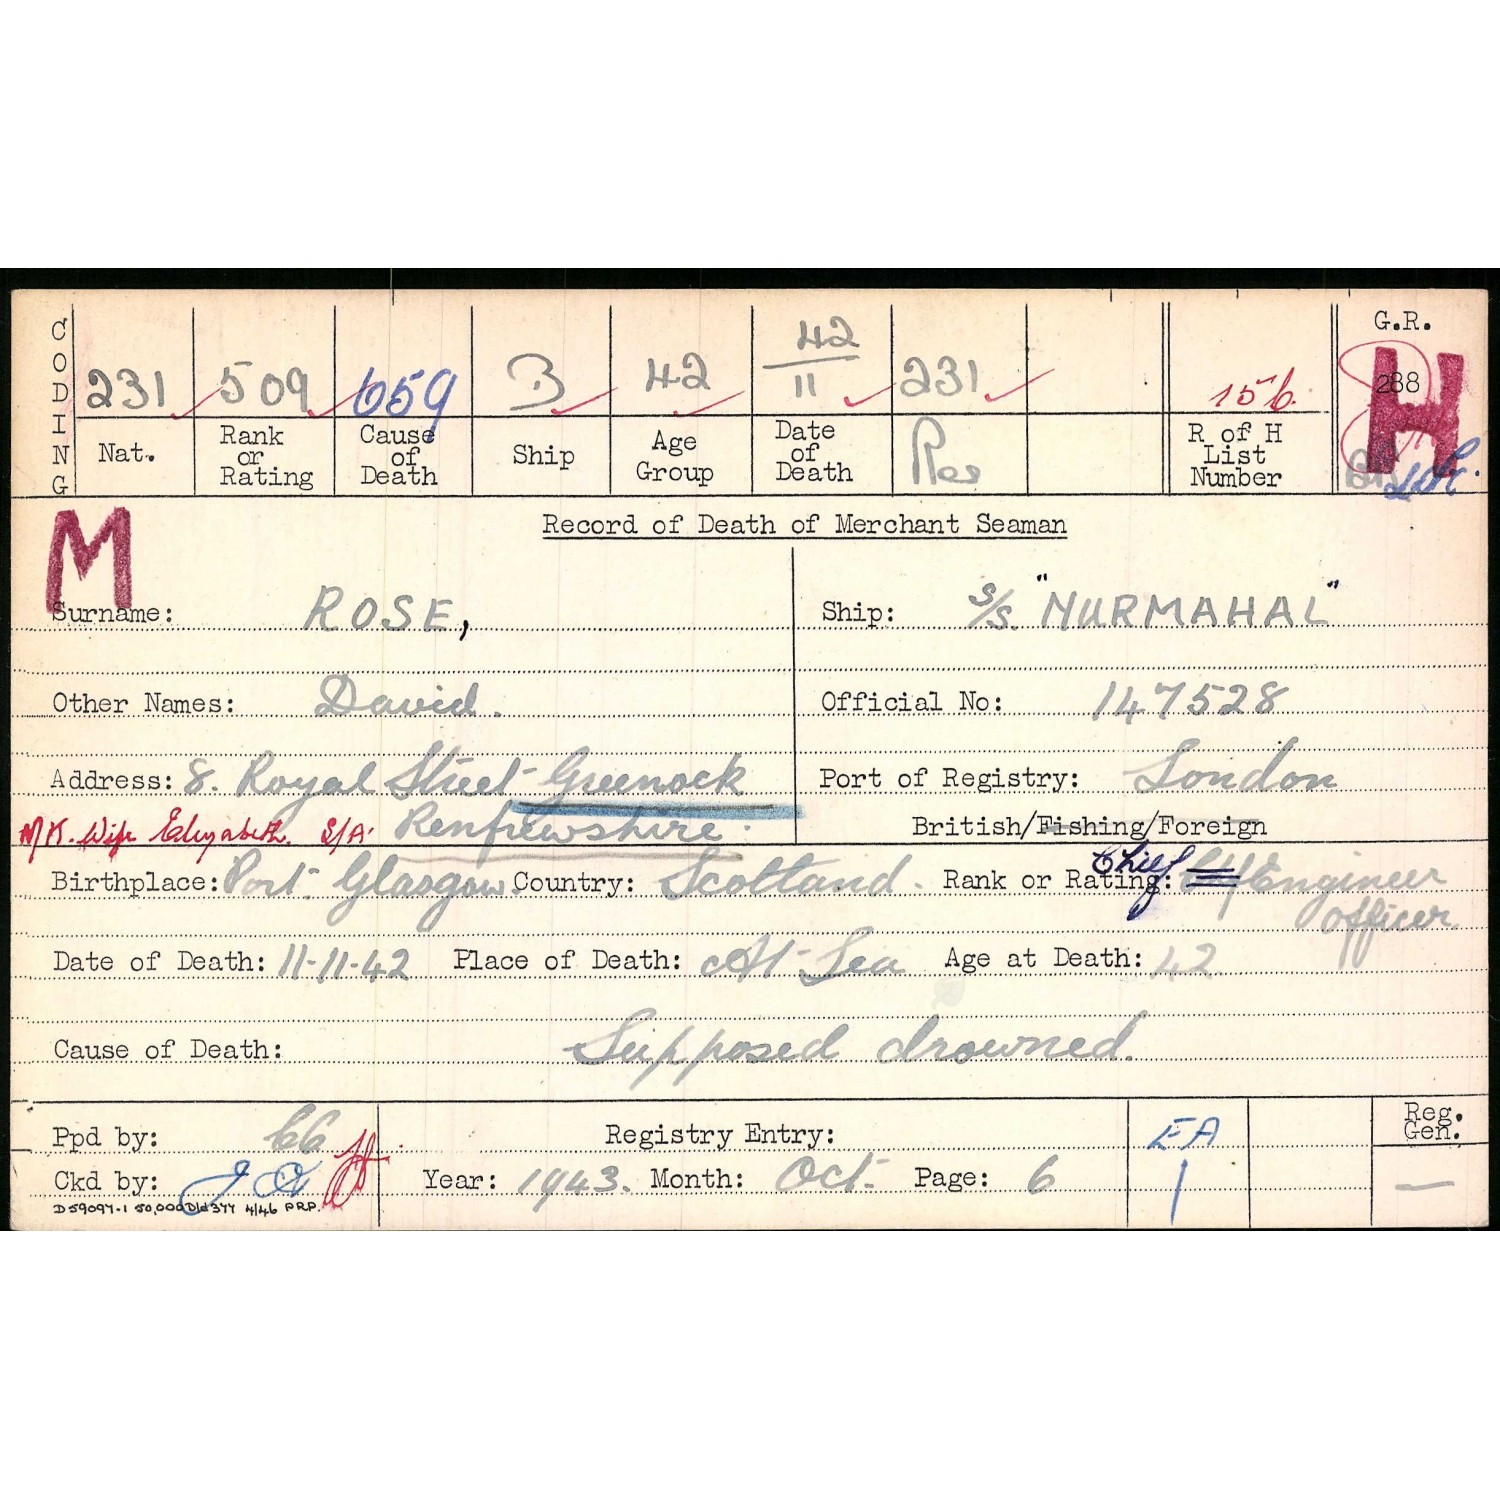 CODING
231 509 659 B 42 42/11 231 156. G.R. 288 H
Nat. Rank or Rating Cause of Death Ship Age Group Date of Death Res R of H List Number
M
Record of Death of Merchant Seaman
Surname: ROSE, Ship: S/S. "NURMAHAL"
Other Names: David. Official No: 147528
Address: 8. Royal Street Greenock Port of Registry: London
N/K. Wife Elizabeth. S/A. Renfrewshire. British/Fishing/Foreign
Birthplace: Port Glasgow. Country: Scotland. Rank or Rating: Chief Engineer
officer.
Date of Death: 11-11-42 Place of Death: At Sea Age at Death: 42
Cause of Death: Supposed drowned.
Ppd by: Registry Entry: EA Reg. Gen.
Ckd by: Year: 1943. Month: Oct. Page: 6 1 —
D59097-1 50,000 D/d 377 4/46 P.R.P.